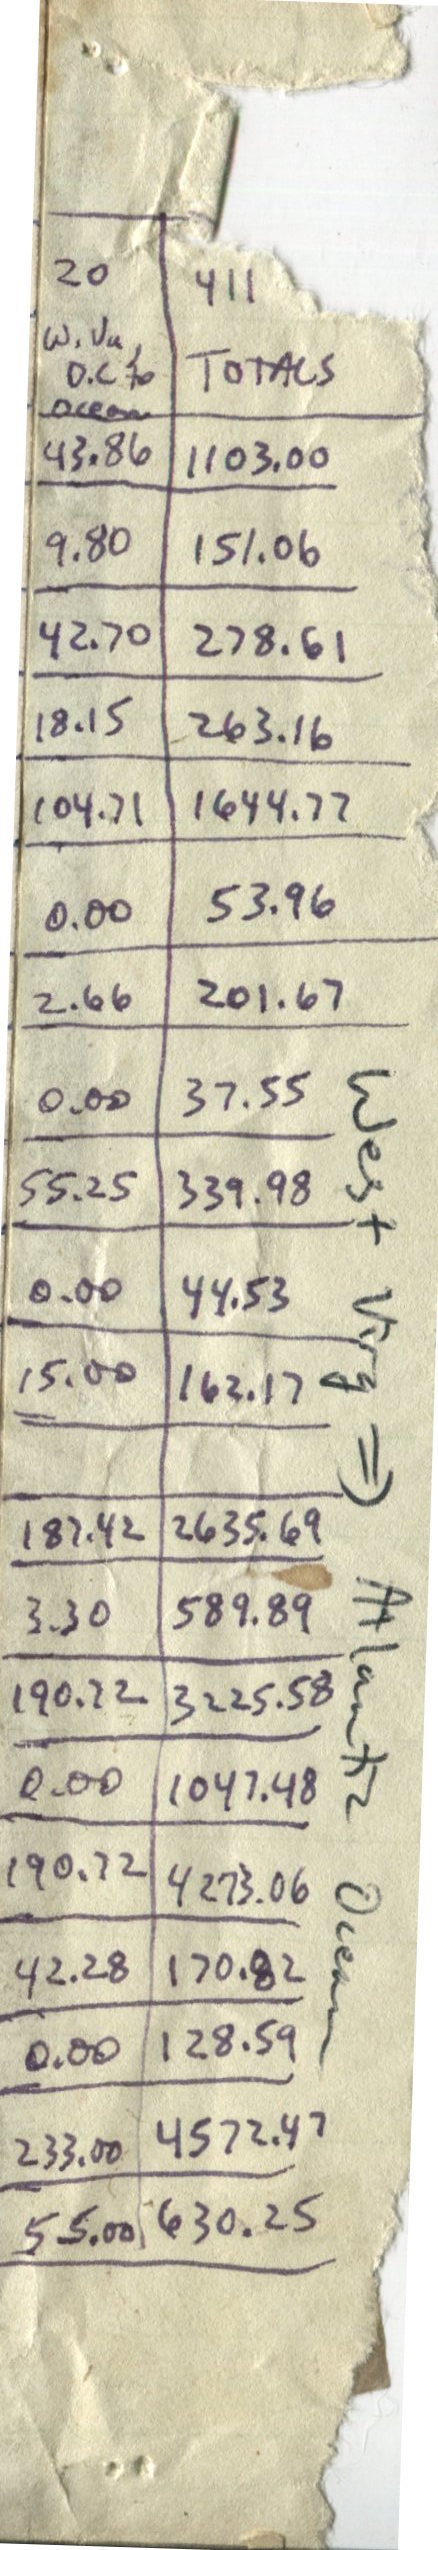 20 411
W. Va,
D.C to TOTALS
ocean
43.86 1103.00
9.80 151.06
42.70 278.61
18.15 263.16
104.71 1644.77
0.00 53.96
2.66 201.67
0.00 37.55
55.25 339.98
0.00 44.53
15.00 162.17
187.42 2635.69
3.30 589.89
190.72 3225.58
0.00 1047.48
190.72 4273.06
42.28 170.82
0.00 128.59
233.00 4572.47
55.00 630.25
West Virg => Atlantic Ocean